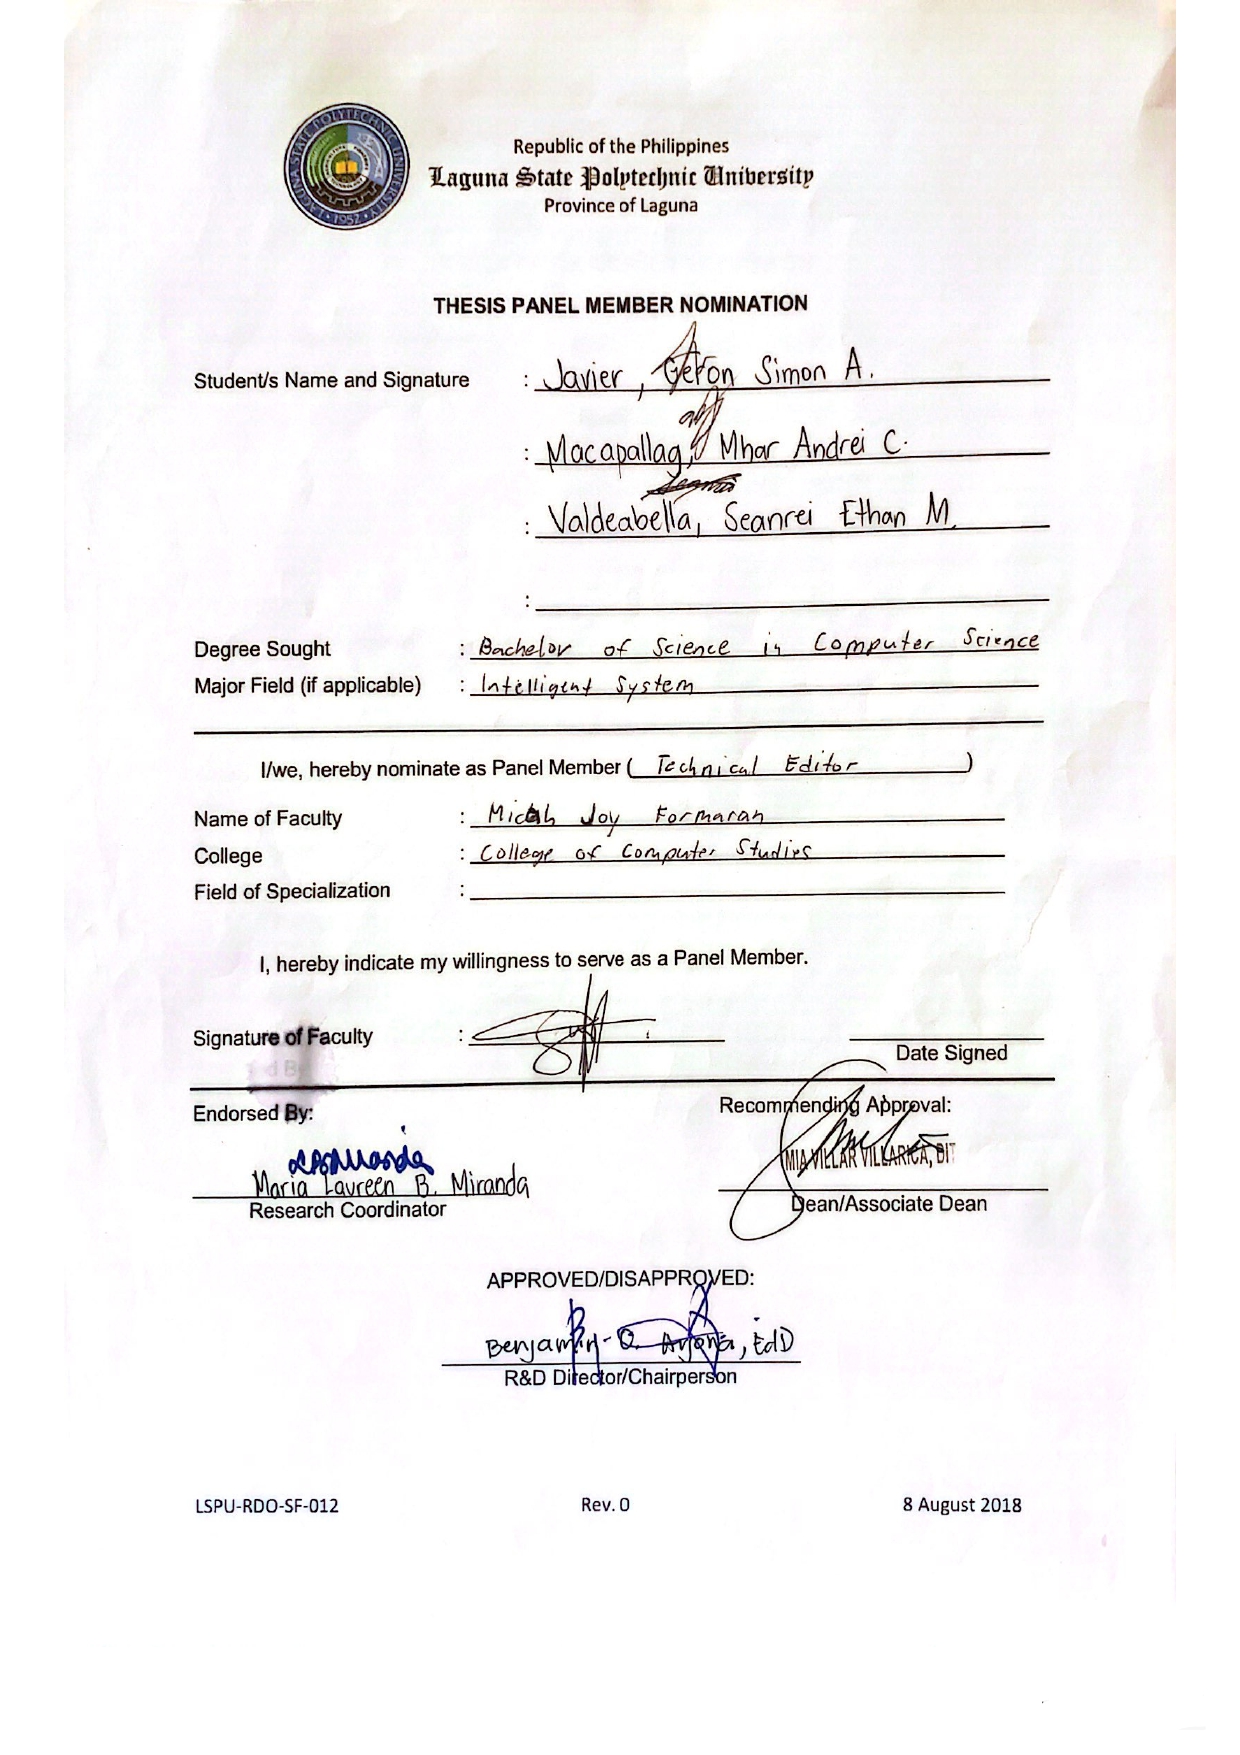 LAGUNA STATE POLYTECHNIC UNIVERSITY
1952
Republic of the Philippines
Laguna State Polytechnic University
Province of Laguna
THESIS PANEL MEMBER NOMINATION
Student/s Name and Signature : Javier, Geron Simon A.
: Macapallag, Mhar Andrei C.
: Valdeabella, Seanrei Ethan M.
:
Degree Sought : Bachelor of Science in Computer Science
Major Field (if applicable) : Intelligent System
I/we, hereby nominate as Panel Member ( Technical Editor )
Name of Faculty : Micah Joy Formaran
College : College of Computer Studies
Field of Specialization :
I, hereby indicate my willingness to serve as a Panel Member.
Signature of Faculty :
Date Signed
Endorsed By:
Recommending Approval:
MIA VILLAR VILLARICA, DIT
Maria Laureen B. Miranda
Research Coordinator
Dean/Associate Dean
APPROVED/DISAPPROVED:
Benjamin O. Arjona, EdD
R&D Director/Chairperson
LSPU-RDO-SF-012 Rev. 0 8 August 2018